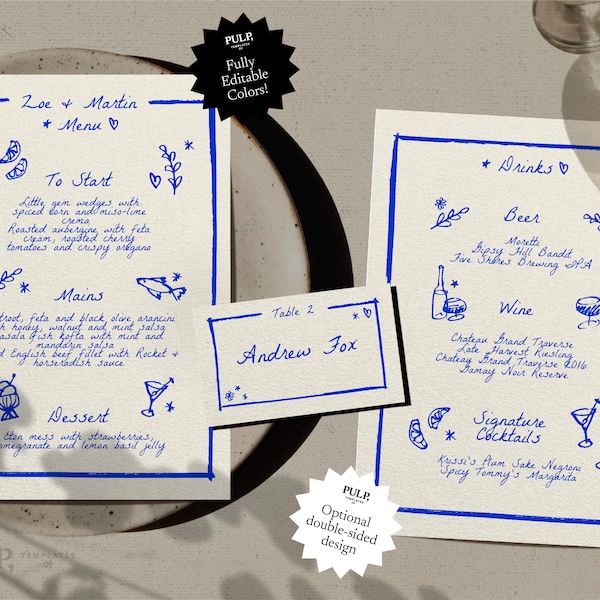 Zoe & Martin
Menu
To Start
Little gem wedges with
spiced corn and miso-lime
crema
Roasted aubergine with feta
cream, roasted cherry
tomatoes and crispy oregano
Mains
feta and black olive arancini
honey, walnut and mint salsa
fish kofta with mint and
mandarin salsa
English beef fillet with Rocket &
horseradish sauce
Dessert
Eton mess with strawberries,
pomegranate and lemon basil jelly
PULP,
TEMPLATES
CO
Fully
Editable
Colors!
Table 2
Andrew Fox
Drinks
Beer
Moretti
Gipsy Hill Bandit
Five Shores Brewing IPA
Wine
Chateau Grand Traverse
Late Harvest Riesling
Chateau Grand Traverse 2016
Gamay Noir Reserve
Signature
Cocktails
Krissi's Plum Sake Negroni
Spicy Tommy's Margarita
PULP,
TEMPLATES
CO
Optional
double-sided
design
TEMPLATES
CO